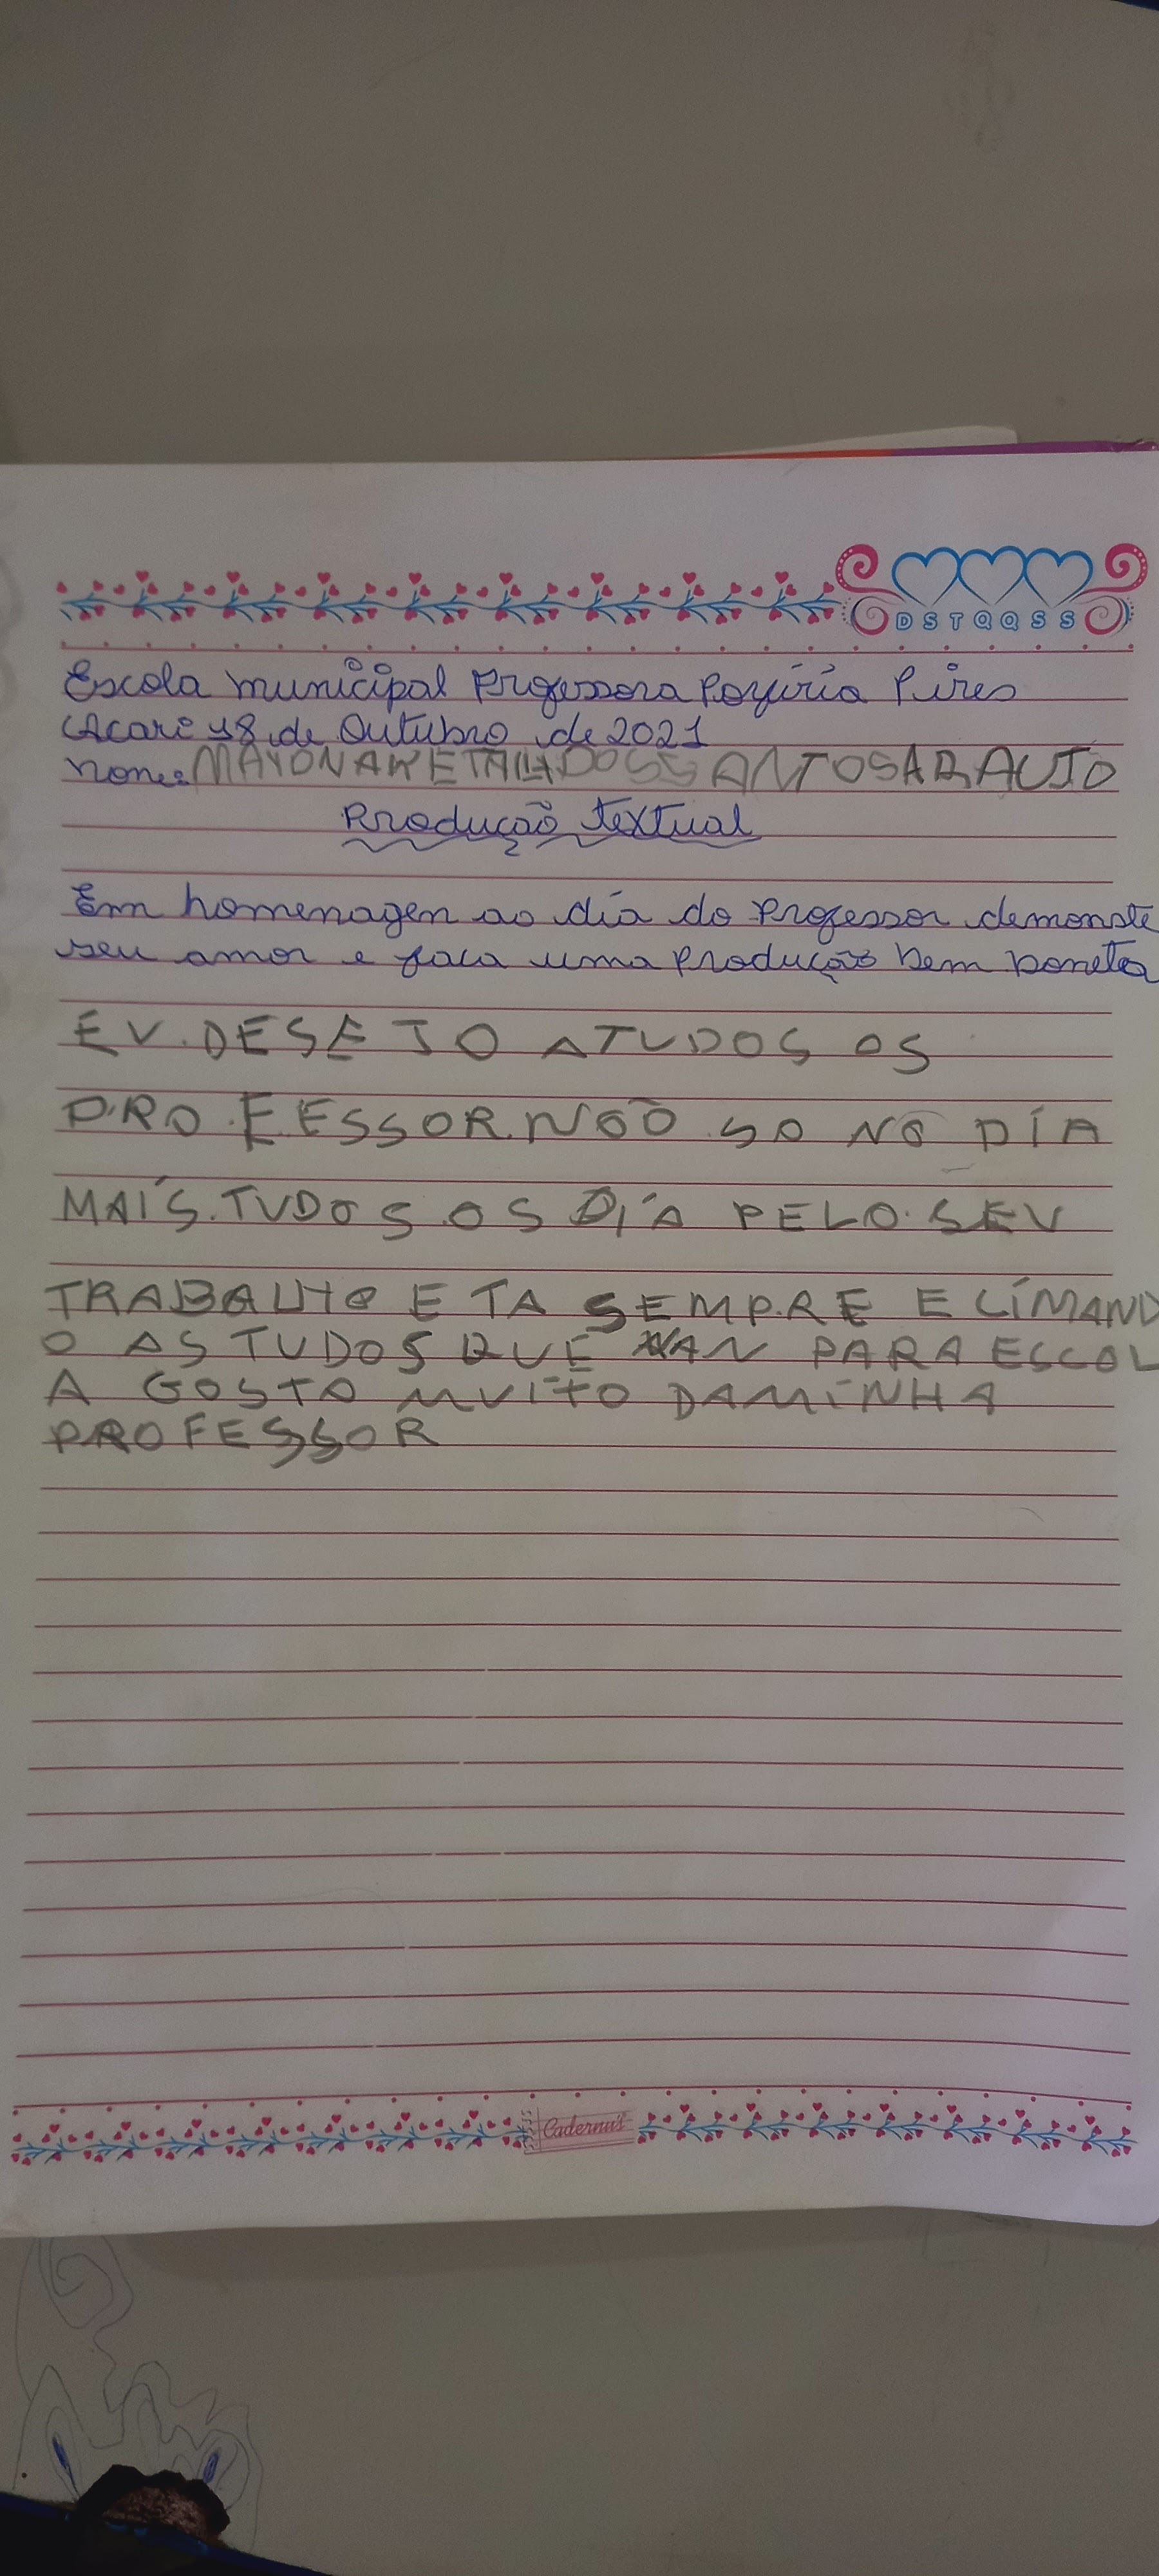 D S T Q Q S S
Escola municipal Professora Porfíria Pires
Acari 18 de Outubro de 2021
Nome: MAYONARE TALIA DOS SANTOS ARAUJO
Produção Textual
Em homenagen ao día do Professor demonste
seu amor e faca uma Produção bem boneta
EU.DESEJO ATUDOS OS
PRO.FESSOR.NÕO SO NO DÍA
MAÍS.TUDOS OS DÍA PELO.SEU
TRABALHO E TA SEMPRE ECÍMAND
O AS TUDOS QUE VAN PARA ESCOL
A GOSTO MUÍTO DAMÍNHA
PROFESSOR
Cadernu's